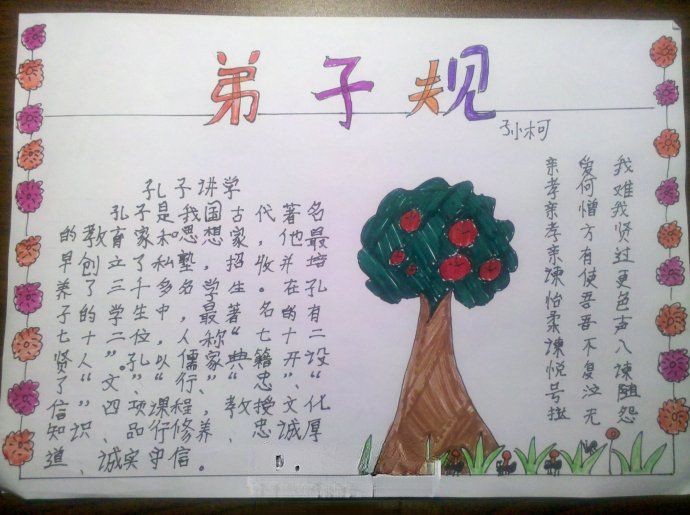 弟子规
孙柯
孔子讲学
孔子是我国古代著名
的教育家和思想家，他最
早创立了私塾，招收并培
养了三千多名学生。在孔
子的学生中，最著名的有
七十二位，人称“七十二
贤人”。孔以儒家典籍开设
了“文”、“行、“忠”、“
信”四项课程，教授文化
知识、品行修养、忠诚厚
道、诚实守信。
亲爱我
孝何难
亲憎我
孝方贤
亲有过
谏使更
怡吾色
柔吾声
谏不入
悦复谏
号泣随
挞无怨